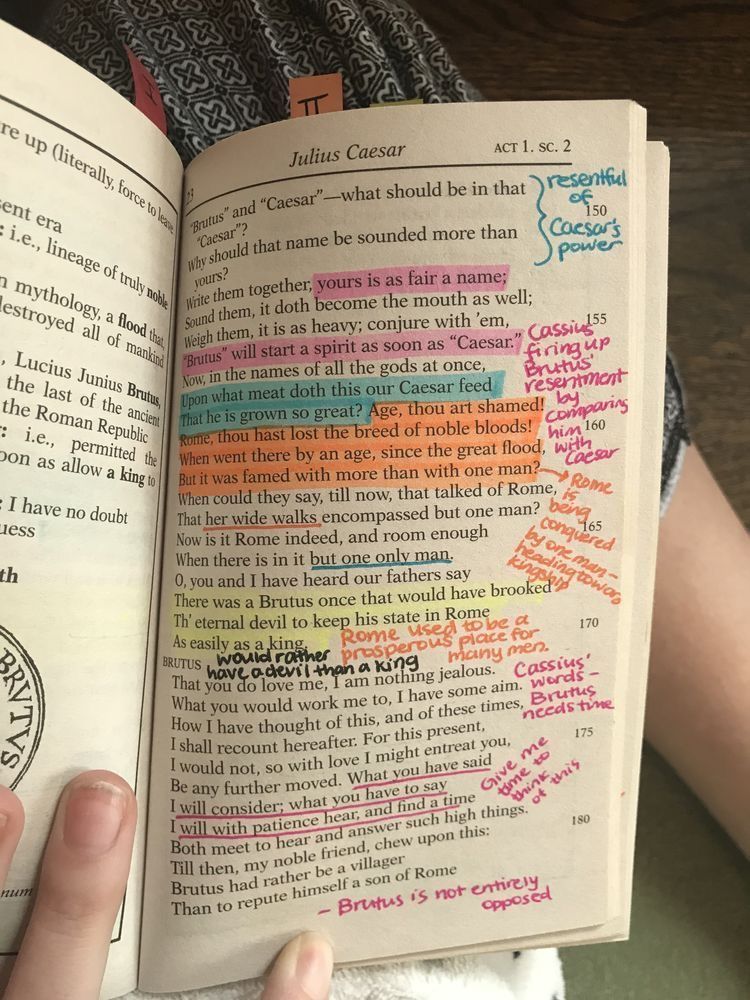 re up (literally, force to leave
sent era
: i.e., lineage of truly noble
n mythology, a flood that
destroyed all of mankind
, Lucius Junius Brutus,
the last of the ancient
the Roman Republic
r: i.e., permitted the
oon as allow a king to
: I have no doubt
uess
th
BRVTVS
num
H
II
Julius Caesar
ACT 1. SC. 2
23
"Brutus" and "Caesar"—what should be in that
"Caesar"?
150
Why should that name be sounded more than
yours?
resentful
of
Caesar's
power
Write them together, yours is as fair a name;
Sound them, it doth become the mouth as well;
Weigh them, it is as heavy; conjure with 'em,
155
"Brutus" will start a spirit as soon as "Caesar."
Now, in the names of all the gods at once,
Upon what meat doth this our Caesar feed
That he is grown so great? Age, thou art shamed!
Rome, thou hast lost the breed of noble bloods!
160
Cassius
firing up
Brutus'
resentment
by
comparing
him
with
Caesar
When went there by an age, since the great flood,
But it was famed with more than with one man?
When could they say, till now, that talked of Rome,
That her wide walks encompassed but one man?
Now is it Rome indeed, and room enough
165
When there is in it but one only man.
Rome
is
being
conquered
by one man–
heading towards
kingship
O, you and I have heard our fathers say
There was a Brutus once that would have brooked
Th' eternal devil to keep his state in Rome
170
As easily as a king.
Rome used to be a
prosperous place for
many men.
would rather
have a devil than a king
BRUTUS
That you do love me, I am nothing jealous.
What you would work me to, I have some aim.
How I have thought of this, and of these times,
I shall recount hereafter. For this present,
175
Cassius'
words–
Brutus
needs time
I would not, so with love I might entreat you,
Be any further moved. What you have said
I will consider; what you have to say
I will with patience hear, and find a time
Give me
time to
think
of this
Both meet to hear and answer such high things.
180
Till then, my noble friend, chew upon this:
Brutus had rather be a villager
Than to repute himself a son of Rome
– Brutus is not entirely
opposed